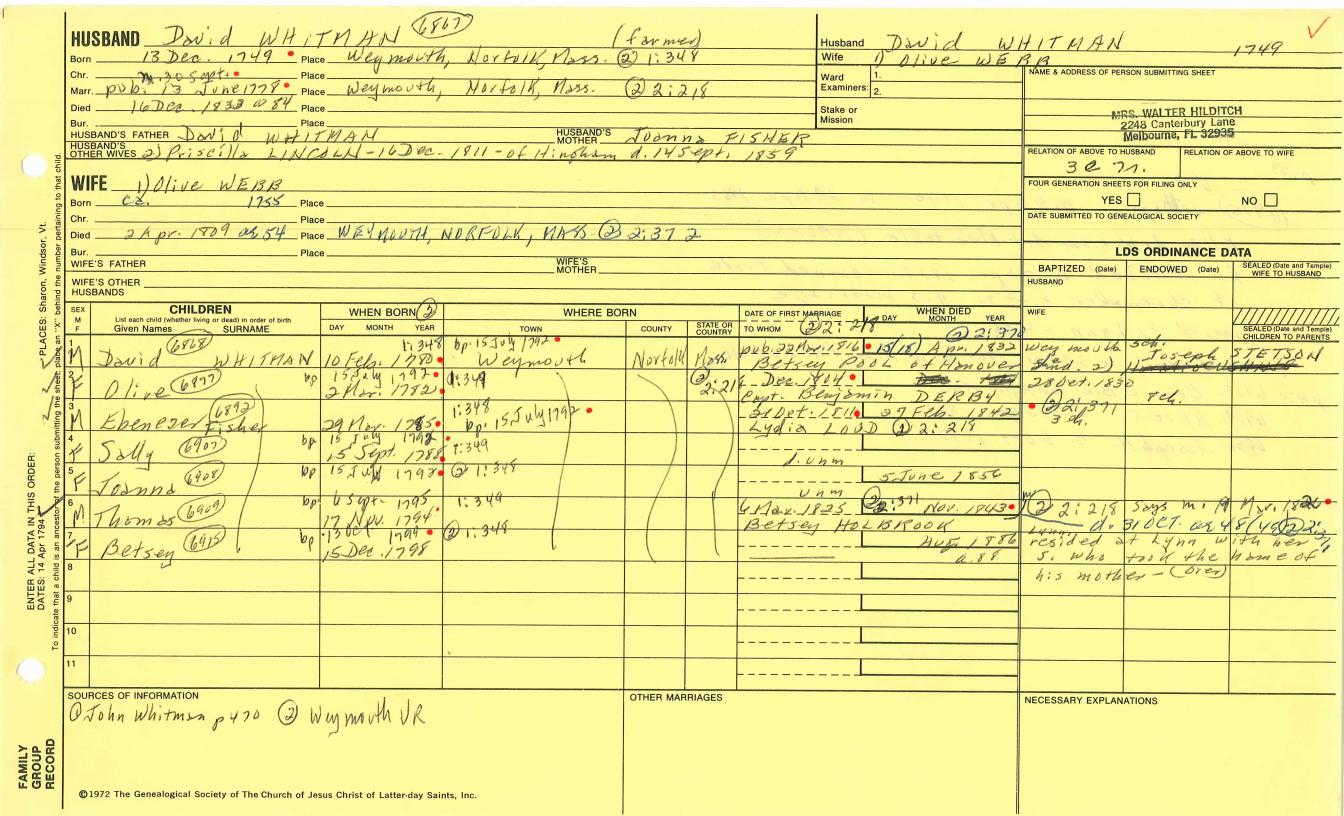 HUSBAND David WHITMAN 6867 (farmer)
Born 13 Dec. 1749 Place Weymouth, Norfolk, Mass. ② 1:348
Chr. m. 30 Sept. Place
Marr. pub. 13 June 1778 Place Weymouth, Norfolk, Mass. ② 2:218
Died 16 Dec. 1833 a 84 Place
Bur. Place
HUSBAND'S FATHER David WHITMAN HUSBAND'S MOTHER Joanna FISHER
HUSBAND'S OTHER WIVES 2) Priscilla LINCOLN - 16 Dec. 1811 - of Hingham d. 14 Sept. 1859
Husband David WHITMAN 1749
Wife 1) Olive WEBB
Ward Examiners: 1. 2.
Stake or Mission
NAME & ADDRESS OF PERSON SUBMITTING SHEET
MRS. WALTER HILDITCH
2248 Canterbury Lane
Melbourne, FL 32935
RELATION OF ABOVE TO HUSBAND RELATION OF ABOVE TO WIFE
FOUR GENERATION SHEETS FOR FILING ONLY
YES NO
DATE SUBMITTED TO GENEALOGICAL SOCIETY
WIFE 1) Olive WEBB
Born ca. 1755 Place
Chr. Place
Died 2 Apr. 1809 ae 54 Place WEYMOUTH, NORFOLK, MASS ② 2:372
Bur. Place
WIFE'S FATHER WIFE'S MOTHER
WIFE'S OTHER HUSBANDS
LDS ORDINANCE DATA
BAPTIZED (Date) ENDOWED (Date) SEALED (Date and Temple) WIFE TO HUSBAND
HUSBAND
WIFE
SEALED (Date and Temple) CHILDREN TO PARENTS
SEX M F CHILDREN WHEN BORN ② WHERE BORN DATE OF FIRST MARRIAGE WHEN DIED
List each child (whether living or dead) in order of birth
Given Names SURNAME DAY MONTH YEAR TOWN COUNTY STATE OR COUNTRY TO WHOM ② 2:218 DAY MONTH YEAR
1 M David 6868 WHITMAN 10 Feb. 1780 1:348 bp. 15 July 1792 Weymouth Norfolk Mass.
Betsey POOL of Hanover 15(18) Apr. 1832
Weymouth sch. Joseph STETSON
28 Oct. 1830
2 F Olive 6877 bp 15 July 1792 1:349
2 Mar. 1782 - Dec. 1804
Capt. Benjamin DERBY
3 M Ebenezer Fisher 6892 29 Mar. 1785 1:348 bp. 15 July 1792
27 Feb. 1842
Lydia LOUD ② 2:218
② 2:371
3 ch.
4 F Sally 6907 bp 15 July 1792 1:349
15 Sept. 1788 d. unm
5 F Joanna 6908 bp 15 July 1792 ② 1:348
5 June 1856
unm
6 M Thomas 6909 bp 6 Sept. 1795 1:349
17 Nov. 1794 6 Mar. 1825 ② 2:371 Nov. 1843
Betsey HOLBROOK
② 2:218 says m. 19 Mar. 1826
d. 31 OCT. ae 48
7 F Betsey 6915 bp 13 Oct 1799 ② 1:348
15 Dec. 1798 Aug 1886
a. 88
resided at Lynn with her
s. who took the name of
his mother - (over)
8
9
10
11
SOURCES OF INFORMATION
① John Whitman p 470 ② Weymouth VR
OTHER MARRIAGES
NECESSARY EXPLANATIONS
©1972 The Genealogical Society of The Church of Jesus Christ of Latter-day Saints, Inc.
FAMILY GROUP RECORD
ENTER ALL DATA IN THIS ORDER:
DATES: 14 Apr 1794 PLACES: Sharon, Windsor, Vt.
To indicate that a child is an ancestor of the person submitting the sheet, place an "X" behind the number pertaining to that child.